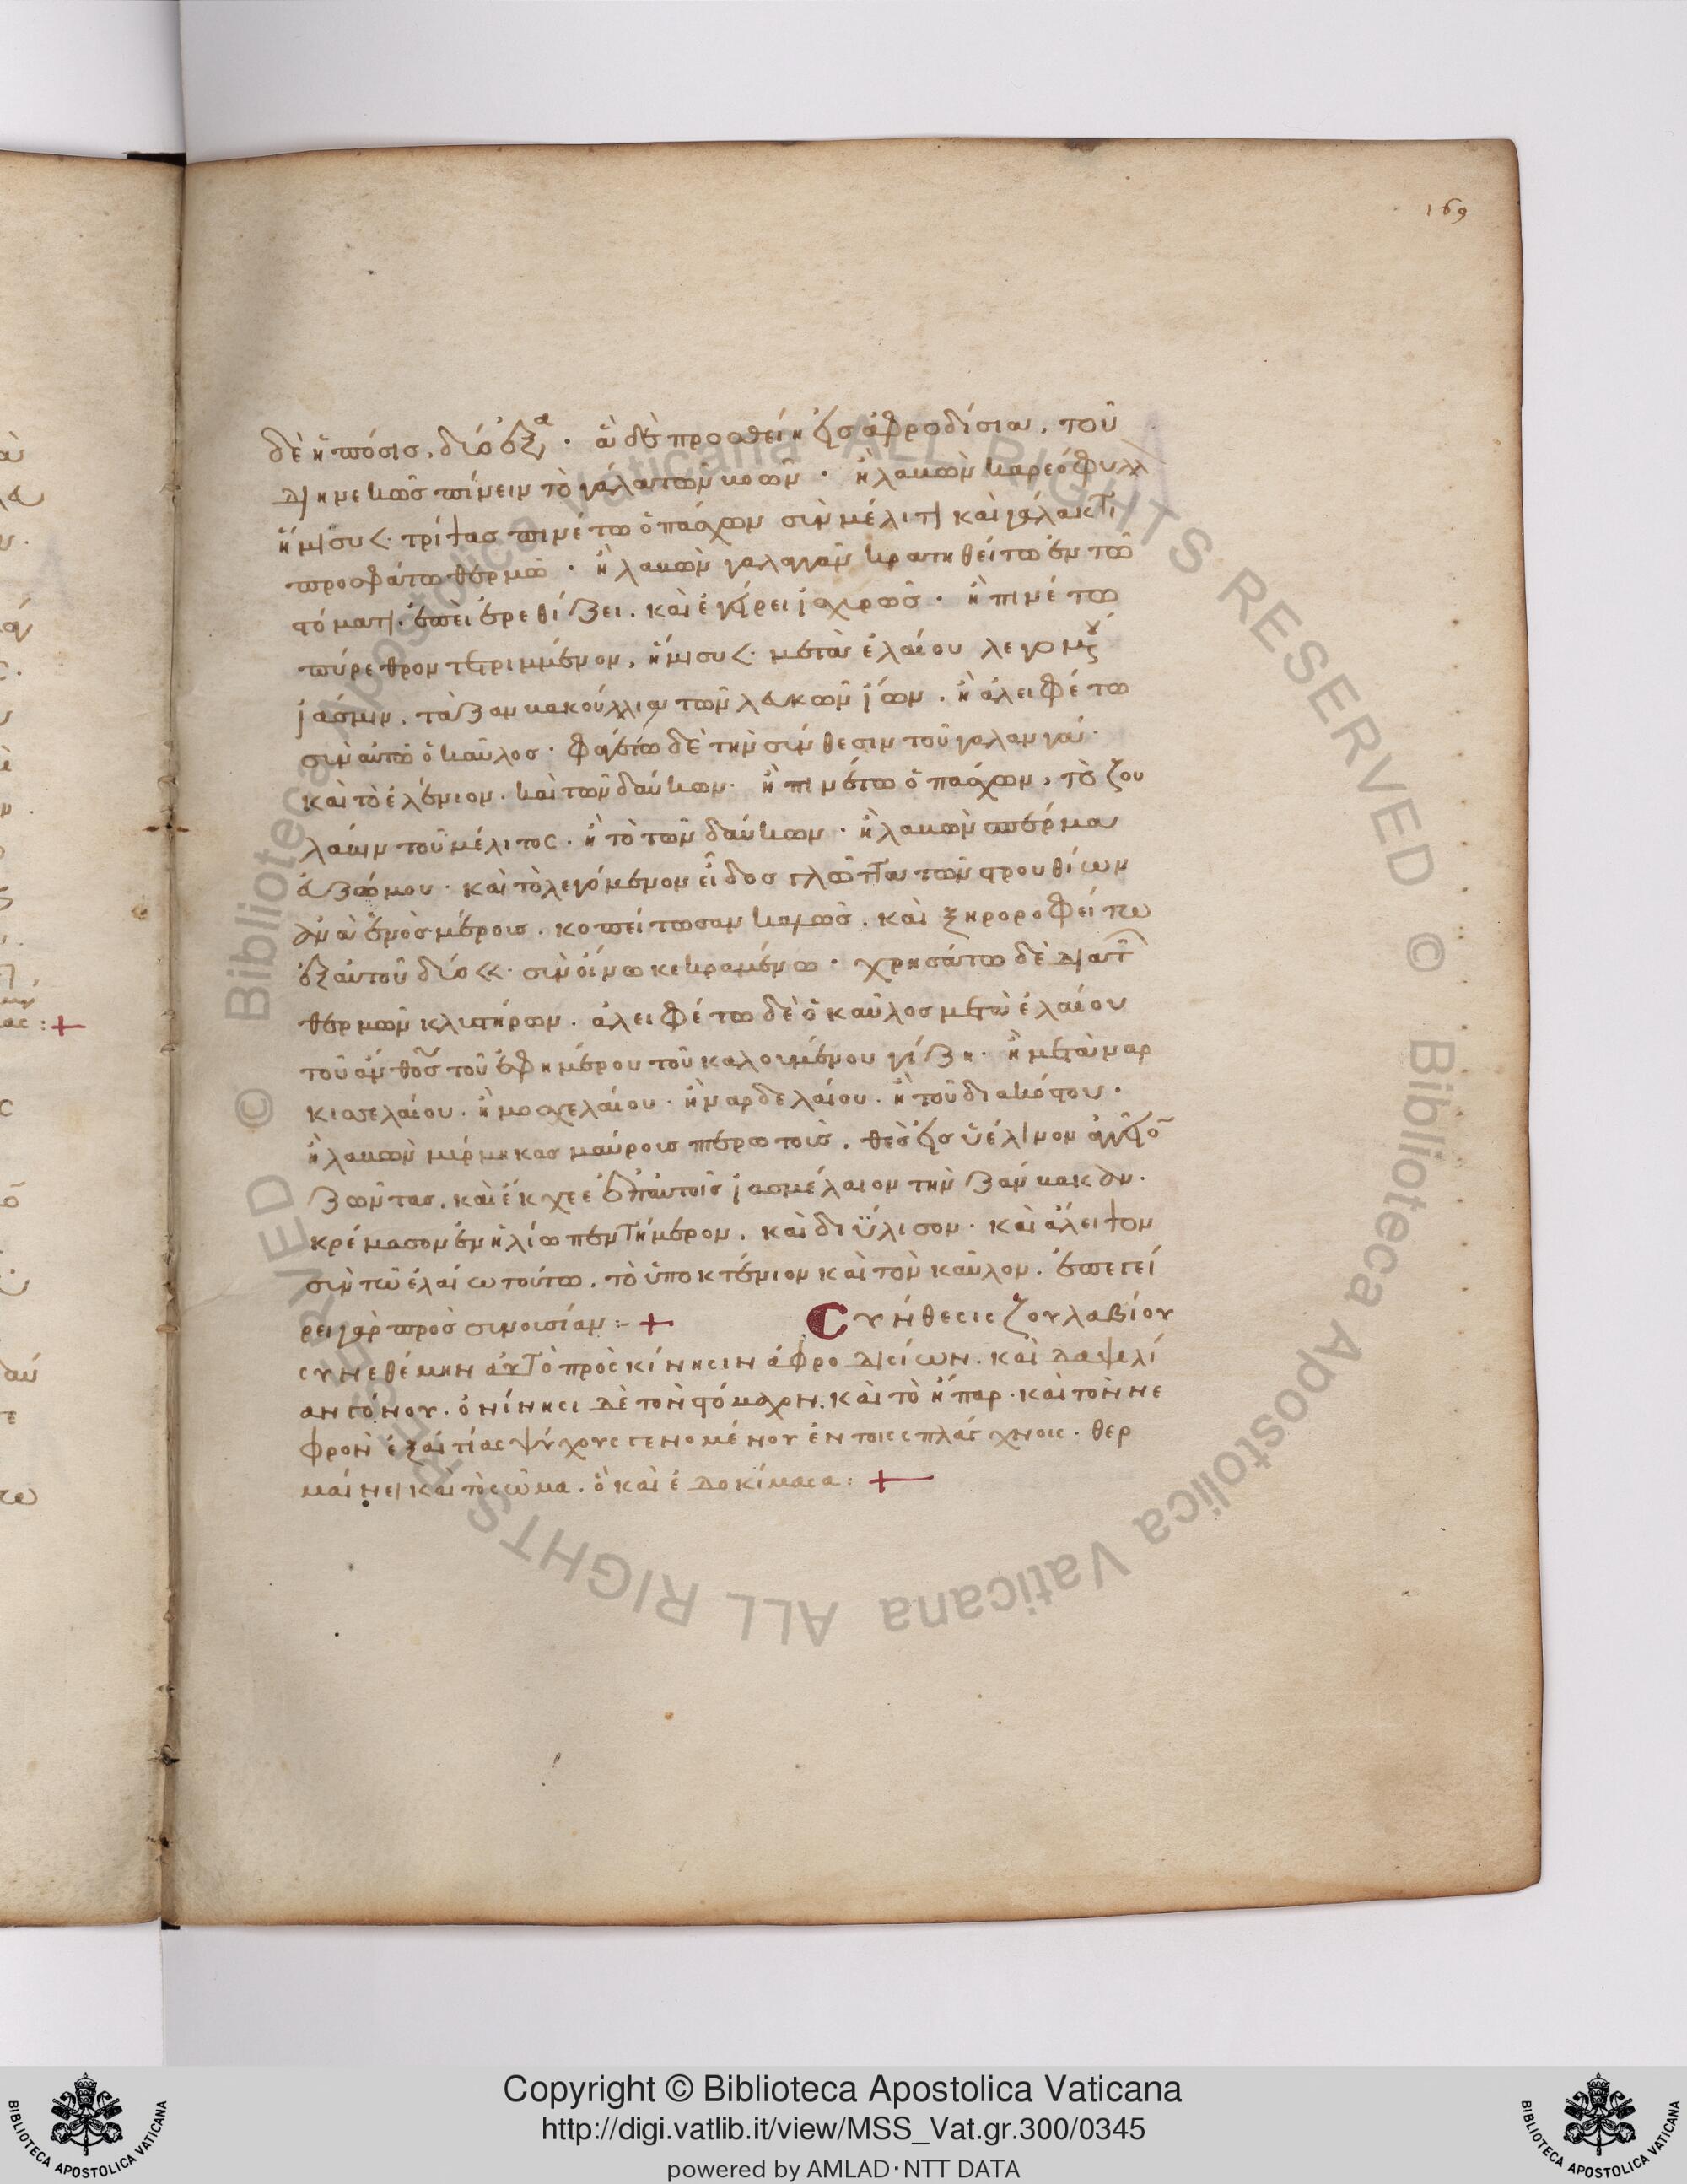 169
δὲ ἡ πόσις. δύο ἑξα. ἂν δὲ προσθείη εἰς ἀφροδίσια, τοῦ
διηνεκῶς πίνειν τὸ γάλα τῶν νοῶν. ἢ λαβὼν καρεόφυλλ
ἥμισυ <. τρίψας πινέτω ὁ πάσχων σὺν μέλιτι καὶ γάλακτι
προσφάτω θερμῶ. ἢ λαβὼν γαλαγγᾶν κρατηθείτω ἐν τῶ
στόματι. ἐπεὶ ἐρεθίζει. καὶ ἐγείρει ἰσχυρῶς. ἢ πινέτω
πύρεθρον τετριμμένον, ἥμισυ <. μετὰ ἐλαίου λεγομε
ἰάσμιν. τὰ ζαμβακούλλια τῶν λευκῶν ἴων. ἢ ἀλειφέτω
σὺν αὐτῶ ὁ καῦλος. φαγέτω δὲ τὴν σύνθεσιν τοῦ γαλαγγά.
καὶ τὸ ἐλένιον. καὶ τῶν δαύκων. ἢ πινέτω ὁ πάσχων, τὸ ζου
λάπιν τοῦ μέλιτος. ἢ τὸ τῶν δαύκων. ἢ λαβὼν σπέρμα
εὐζώμου. καὶ τὸ λεγόμενον εἶδος γλῶττα τῶν στρουθίων
ἀνὰ ἑνὸς μέρους. κοπείτωσαν καλῶς. καὶ ξηροροφείτω
ἐξ αὐτοῦ δύο <<. σὺν οἴνω κεκραμένω. χρησάτω δὲ διὰ τ
θερμῶν κλυστήρων. ἀλειφέτω δὲ ὁ καῦλος μετὰ ἐλαίου
τοῦ ἄνθους τοῦ ἐφημέρου τοῦ καλουμένου γίζη. ἢ μετὰ ναρ
κισελαίου. ἢ μοσχελαίου. ἢ ναρδελαίου. ἢ τοῦ διακόστου.
ἢ λαβὼν μύρμηκας μαύρους πτερωτοὺς. θὲς εἰς ὑέλινον ἀγγεῖο
ζῶντας. καὶ ἔκχεε ἐπ' αὐτοῖς ἰασμέλαιον τὴν ζάμβακ
κρέμασον ἐν ἡλίω πενθήμερον. καὶ διΰλισον. καὶ ἄλειψον
σὺν τῶ ἐλαίω τούτω. τὸ ὑποκτένιον καὶ τὸν καῦλον. ἐπεγεί
ρει γὰρ πρὸς συνουσίαν :- +
Συνήθεσις ζουλαβίου
συνεθέμην αὐτὸ πρὸς κίνησιν ἀφροδισίων. καὶ δαψιλί
αν γόνου. ὀνίνησι δὲ τὸν στόμαχον. καὶ τὸ ἧπαρ. καὶ τὸν νε
φρὸν ἐξ αἰτίας ψύχους γενομένου ἐν τοῖς σπλάγχνοις. θερ
μαίνει καὶ τὸ σῶμα. ὃ καὶ ἐδοκίμασα : +
Copyright © Biblioteca Apostolica Vaticana
http://digi.vatlib.it/view/MSS_Vat.gr.300/0345
powered by AMLAD·NTT DATA
BIBLIOTECA APOSTOLICA VATICANA
BIBLIOTECA APOSTOLICA VATICANA